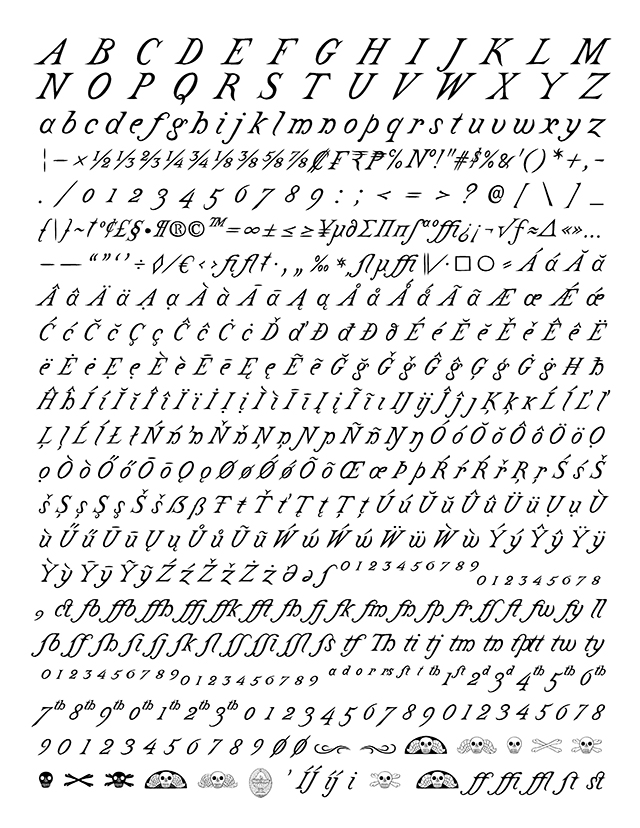 A B C D E F G H I J K L M
N O P Q R S T U V W X Y Z
a b c d e f g h i j k l m n o p q r s t u v w x y z
¦ – × ½ ⅓ ⅔ ¼ ¾ ⅛ ⅜ ⅝ ⅞ ₣ ₹ ₱ ℅ № ! " # $ % & ' ( ) * + , -
. / 0 1 2 3 4 5 6 7 8 9 : ; < = > ? @ [ \ ] _
{ | } ~ † ° ¢ £ § • ¶ ® © ™ = ∞ ± ≤ ≥ ¥ µ ∂ Σ Π π ∫ ª º ffi ¿ ¡ ¬ √ ƒ ≈ Δ « » …
– — “ ” ‘ ’ ÷ ◊ ⁄ € ‹ › fi fl ‡ · ‚ „ ‰ * fl µ ffi ‖ ⁄ · □ ○ Á á Ă ă
Â â Ä ä Ạ ạ À à Ā ā Ą ą Å å Ǻ ǻ Ã ã Æ æ Ǽ ǽ
Ć ć Č č Ç ç Ĉ ĉ Ċ ċ Ď ď Đ đ Ð ð É é Ĕ ĕ Ě ě Ê ê Ë
ë Ė ė Ẹ ẹ È è Ē ē Ę ę Ẽ ẽ Ğ ğ Ǧ ǧ Ĝ ĝ Ģ ģ Ġ ġ Ħ ħ
Ĥ ĥ Í í Ĭ ĭ Î î Ï ï İ Ị ị Ì ì Ī ī Į į Ĩ ĩ ı Ĳ ĳ Ĵ ĵ ȷ Ķ ķ ĸ Ĺ ĺ Ľ ľ
Ļ ļ Ŀ ŀ Ł ł Ń ń ŉ Ň ň Ņ ņ Ñ ñ Ŋ ŋ Ó ó Ŏ ŏ Ô ô Ö ö Ọ
ọ Ò ò Ő ő Ō ō Ǫ ǫ Ø ø Ǿ ǿ Õ õ Œ œ Þ þ Ŕ ŕ Ř ř Ŗ ŗ Ś ś Š
š Ş ş Ș ș ß Ŧ ŧ Ť ť Ţ ţ Ț ț Ú ú Ŭ ŭ Û û Ü ü Ụ ụ Ù
ù Ű ű Ū ū Ų ų Ů ů Ũ ũ Ẃ ẃ Ŵ ŵ Ẅ ẅ Ẁ ẁ Ý ý Ŷ ŷ Ÿ ÿ
Ỳ ỳ Ȳ ȳ Ỹ ỹ Ź ź Ž ž Ż ż Ə ə ſ 0 1 2 3 4 5 6 7 8 9 0 1 2 3 4 5 6 7 8
9 ct fb ffb ffh ffj ffk fft fh fj fk fr ft fw fy ll
tf Th ti tj tm tn tt tw ty
0 1 2 3 4 5 6 7 8 9 0 1 2 3 4 5 6 7 8 9 a d o r r s t t th 1st 2d 3d 4th 5th 6th
7th 8th 9th 0th 1th 2th 3th 0 1 2 3 4 5 6 7 8 9 0 1 2 3 4 5 6 7 8
9 0 1 2 3 4 5 6 7 8 9 Ø Ø
' ÍJ́ íj́ i ff ffi ffl st